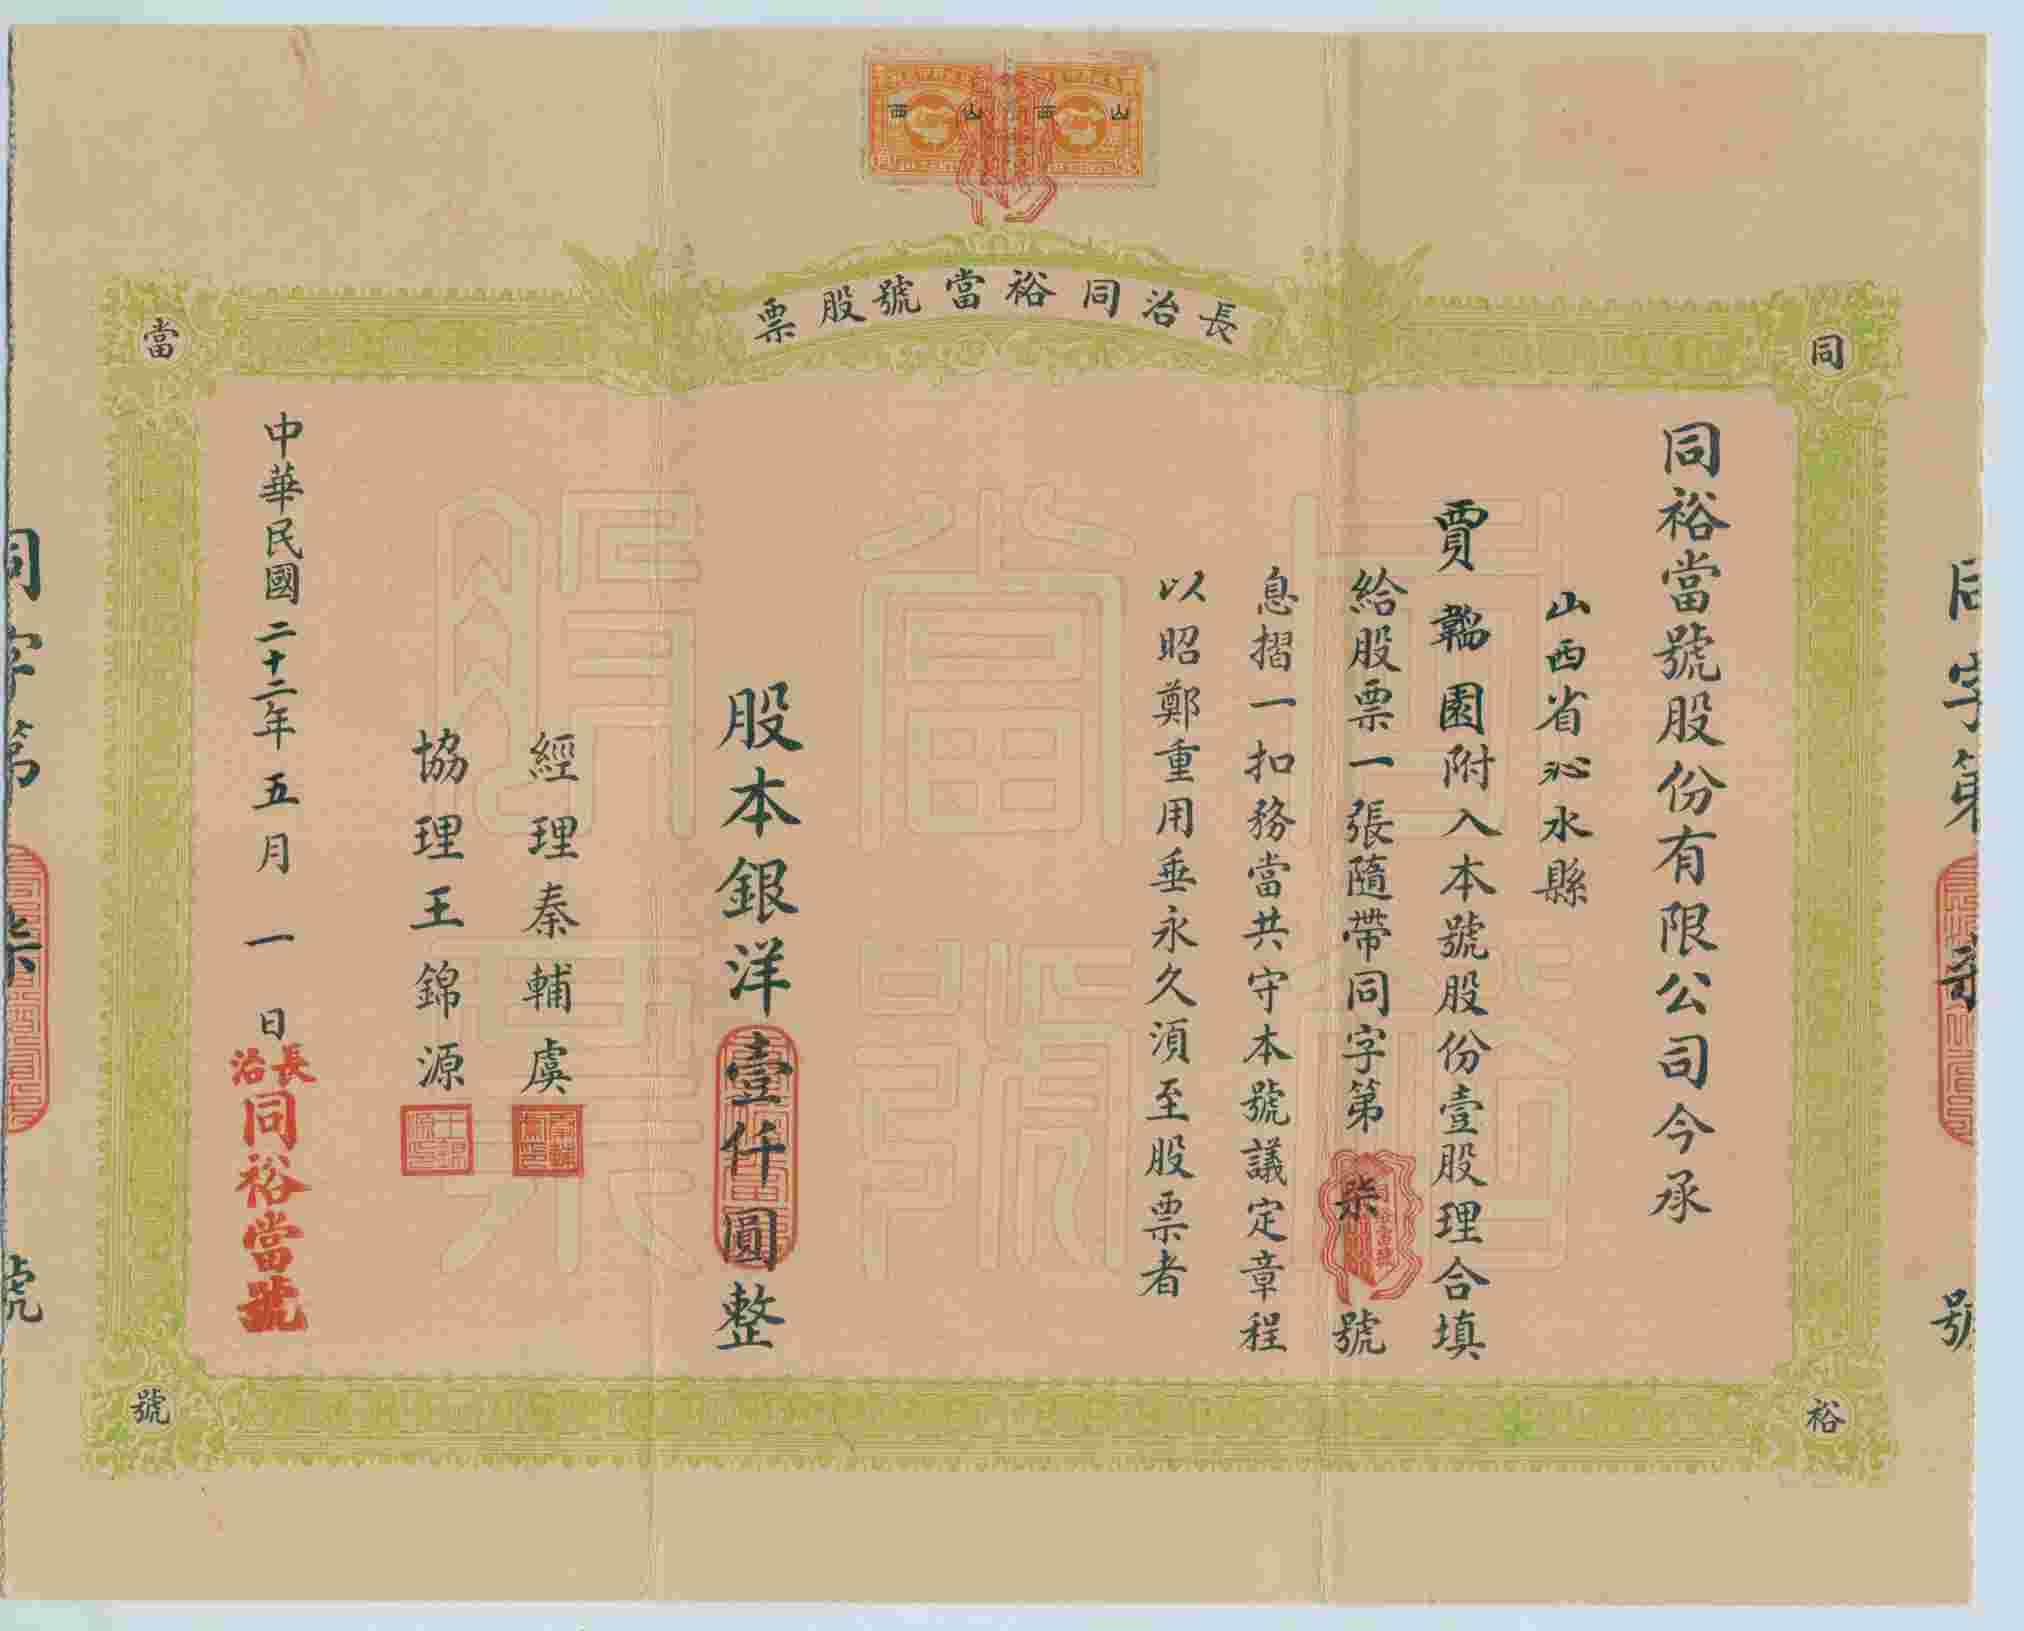 山西
山西
長治同裕當號股票
同
裕
當
號
同裕當號股份有限公司今承
山西省沁水縣
賈韞園附入本號股份壹股理合填
給股票一張隨帶同字第柒號
息摺一扣務當共守本號議定章程
以昭鄭重用垂永久須至股票者
股本銀洋壹仟圓整
經理秦輔虞
協理王錦源
中華民國二十二年五月一日
長治
同裕當號
同裕當號股票
同字第柒號